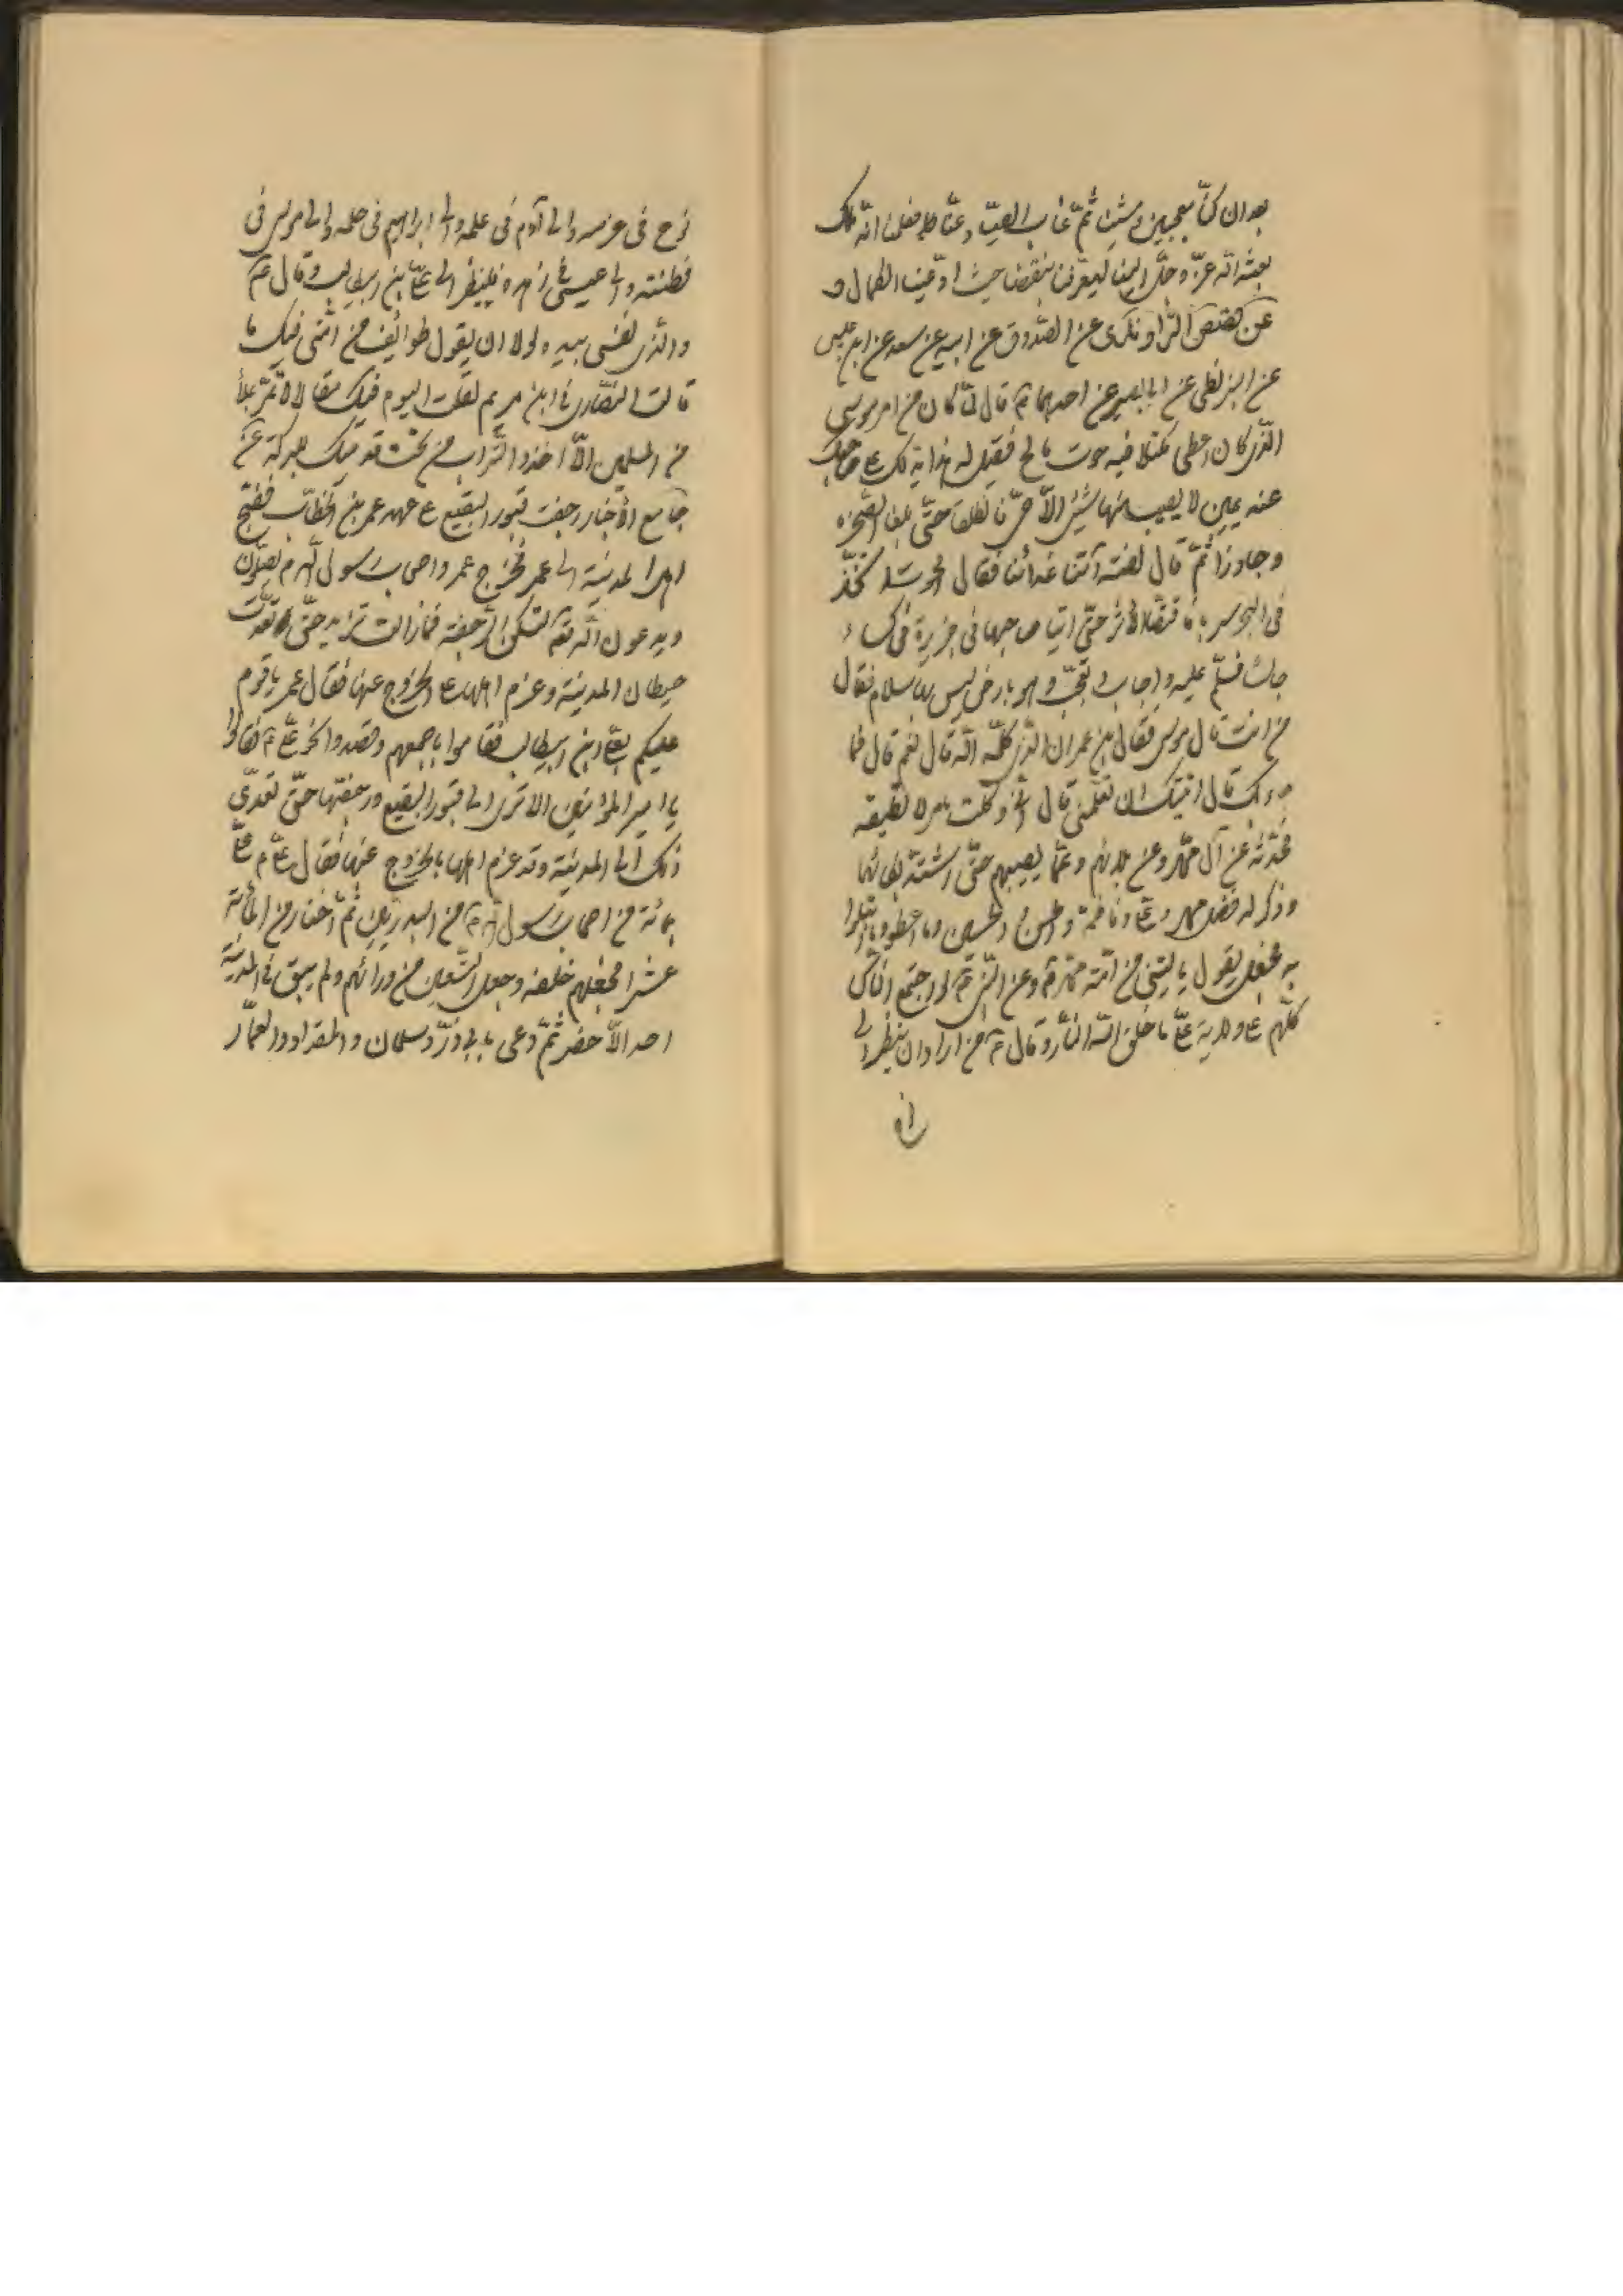 بعد ان كنّا معجبين ومشينا ثمّ غاب الصيّاد عنّا فعلمنا انّه ملك
بعثه الله عزّ وجلّ الينا ليعرّفنا بنقصنا حيث ادّعينا الكمال و
عن قصص الرّاوندى عن الصّدوق عن ابيه عن سعد عن ابن عيسى
عن البزنطى عن ابى بصير عن احدهما ع قال لمّا كان من امر موسى
الّذى كان اعطى مكتلا فيه حوت مالح فقيل له هذا يدلك على صاحبك
عند عين لا يصيب منها شئ الّا حىّ فانطلقا حتّى بلغا الصّخرة
وجاوزا ثمّ قال لفتيه آتنا غدائنا فقال الحوت اتّخذ
فى البحر سربا فاقتصّا الاثر حتّى اتيا صاحبهما فى جزيرة فى كساء
جالسا فسلّم عليه واجاب وتعجّب وهو بارض ليس بها سلام فقال
من انت قال موسى فقال بن عمران الّذى كلّمه الله قال نعم قال فما
جاء بك قال اتيتك ان تعلّمنى قال انّى وكّلت بامر لا تطيقه
فحدّثه عن آل محمّد وعن بلائهم وعمّا يصيبهم حتّى اشتدّ بكائهما
وذكر له فضل محمّد وعلى وفاطمة والحسن والحسين وما اعطوا وما ابتلوا
به فجعل يقول يا ليتنى من امّة محمّد وعن النّبى ص لو اجتمع النّاس
كلّهم على ولاية علىّ ما خلق الله النّار وقال ص من اراد ان ينظر الى
نوح فى عزمه والى آدم فى علمه والى ابراهيم فى حلمه والى موسى فى
فطنته والى عيسى فى زهده فلينظر الى علىّ بن ابيطالب وقال ص
والّذى نفسى بيده لولا ان يقول طوائف من امّتى فيك ما
قالت النّصارى فى ابن مريم لقلت اليوم فيك مقالا لا تمرّ بملأ
من المسلمين الّا اخذوا التّراب من تحت قدميك للبركة عن
جامع الاخبار رجفت قبور البقيع على عهد عمر بن الخطّاب فضجّ
اهل المدينة الى عمر فخرج عمر واصحاب رسول الله ص يصلّون
ويدعون الله تع لتسكن الرّجفة فما زالت تزيد حتّى تعدّت
حيطان المدينة وعزم اهلها على الخروج عنها فقال عمر يا قوم
عليكم بعلىّ بن ابيطالب فقاموا باجمعهم وقصدوا نحو علىّ ع فقالوا
يا امير المؤمنين الا ترى الى قبور البقيع ورجفتها حتّى تعدّى
ذلك الى المدينة وقد عزم اهلها بالخروج عنها فقال علىّ ع علىّ
بمائة من اصحاب رسول الله ص من البدريّين ثمّ اختار من المائة
عشرا فجعلهم خلفه وجعل التّسعين من ورائهم ولم يبق فى المدينة
احد الّا حضر ثمّ دعى بابى ذرّ وسلمان والمقداد والعمّار